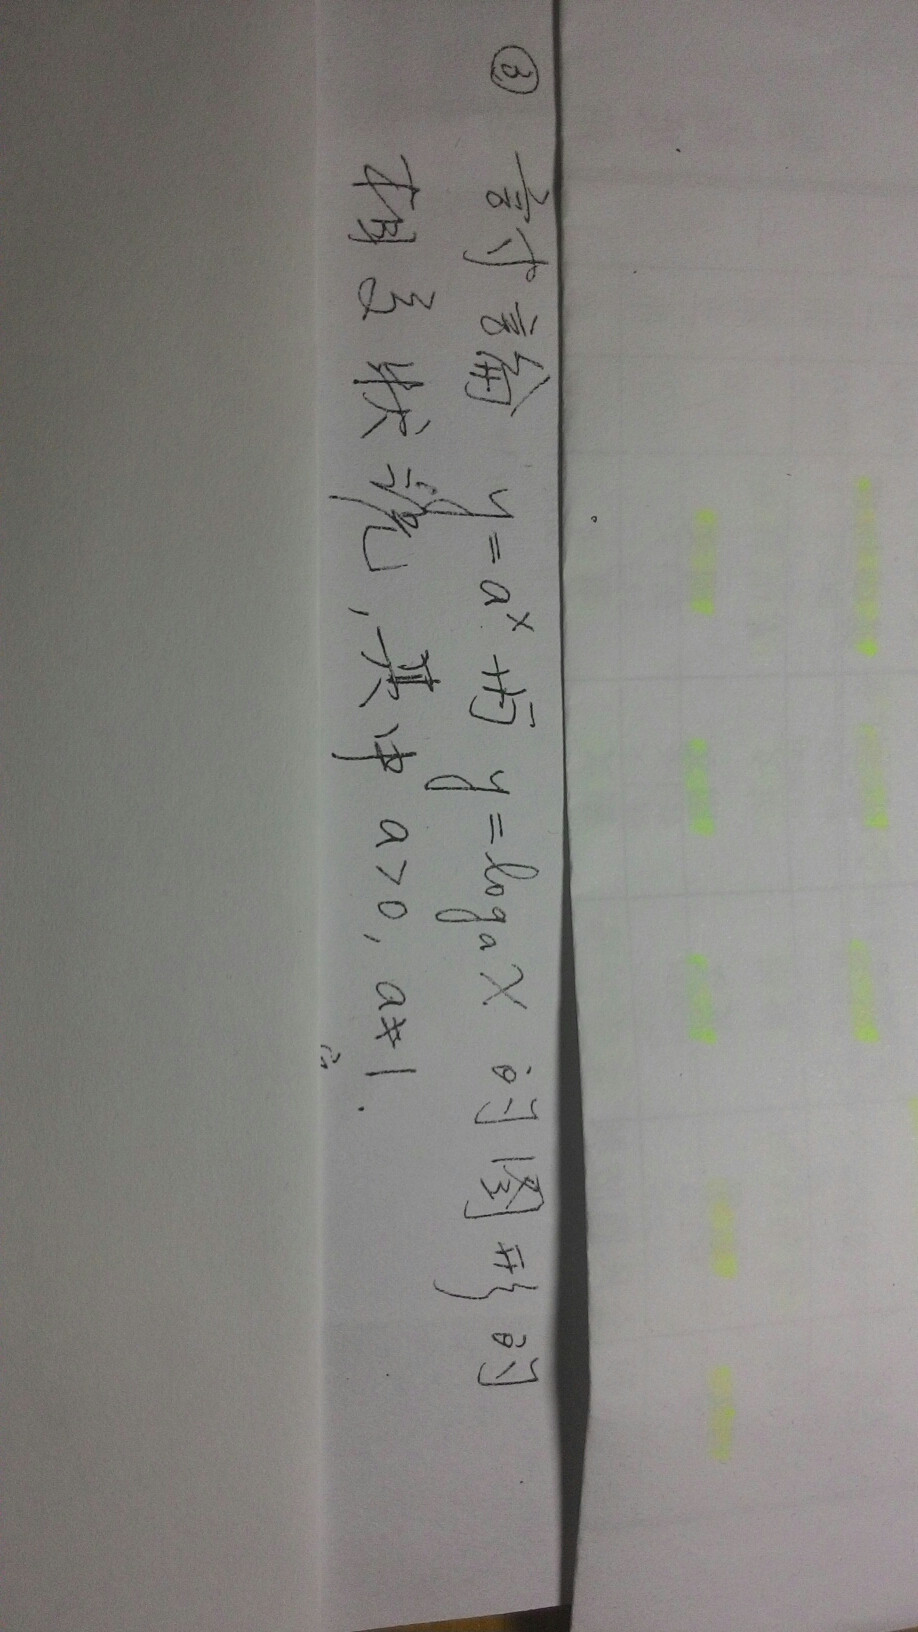 ③ 討論 y=aˣ 與 y=logₐx 的图形的
相交狀況,其中 a>0, a≠1.